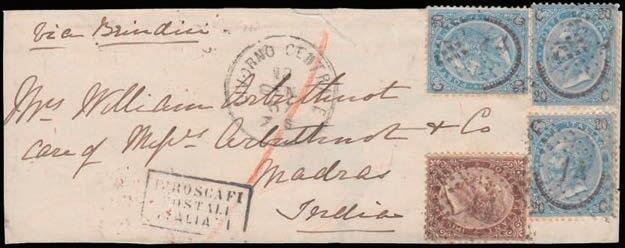 via Brindisi
LIVORNO CENTRALE
12
GEN
Mrs William Arbuthnot
care of Messrs Arbuthnot & Co
Madras
India
PIROSCAFI
POSTALI
ITALIANI
20 20
C C
20 20
C C
20 20
C C